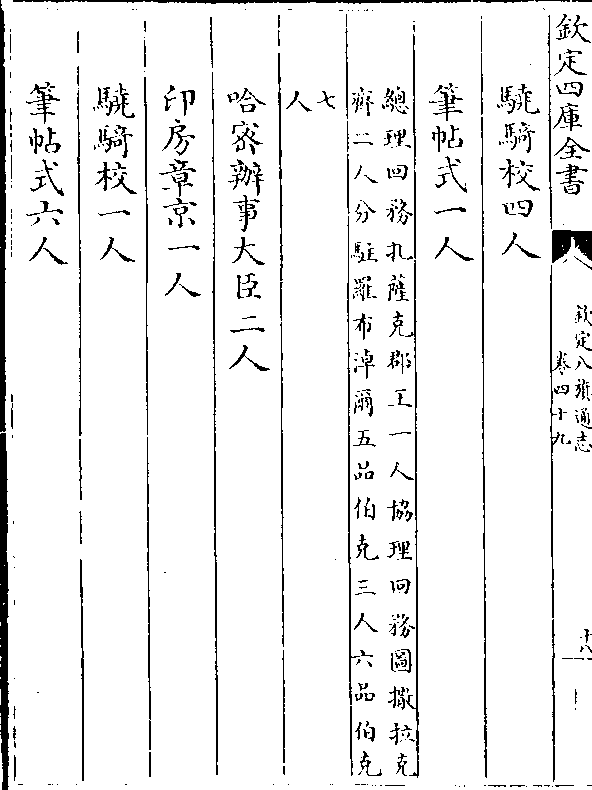 欽定四庫全書
欽定八旗通志
卷四十九
十八
驍騎校四人
筆帖式一人
總理回務扎薩克郡王一人協理回務圖撒拉克
齊二人分駐羅布淖爾五品伯克三人六品伯克
七
人
哈密辦事大臣二人
印房章京一人
驍騎校一人
筆帖式六人